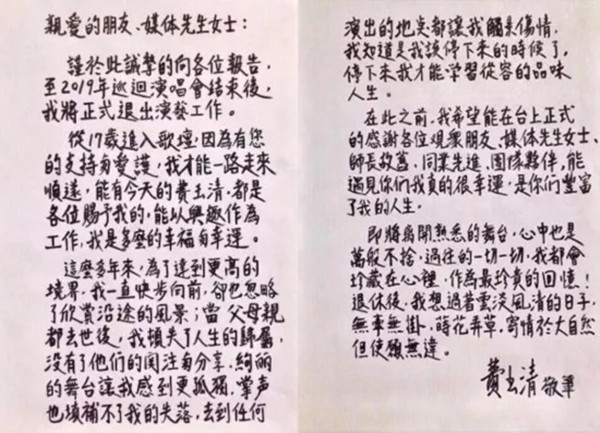 親愛的朋友、媒体先生女士：
謹於此誠摯的向各位報告，
至2019年巡迴演唱會結束後，
我將正式退出演藝工作。
從17歲進入歌壇，因為有您
的支持與愛護，我才能一路走來
順遂，能有今天的費玉清，都是
各位賜予我的，能以興趣作為
工作，我是多麼的幸福與幸運。
這麼多年來，為了達到更高的
境界，我一直快步向前，卻也忽略
了欣賞沿途的風景；當父母親
都去世後，我頓失了人生的歸屬，
沒有了他們的関注與分享，絢麗
的舞台讓我感到更孤獨，掌声
也填補不了我的失落，去到任何
演出的地点都讓我觸景傷情，
我知道是我該停下來的時候了，
停下來我才能學習從容的品味
人生。
在此之前，我希望能在台上正式
的感謝各位观衆朋友、媒体先生女士、
師長故舊、同業先進、团隊夥伴，能
遇見你們我真的很幸運，是你們豐富
了我的人生。
即將离開熟悉的舞台，心中也是
萬般不捨，過往的一切一切，我都會
珍藏在心裡，作為最珍貴的回憶！
退休後，我想過著雲淡風清的日子，
無牽無掛，時花弄草，寄情於大自然
但使願無違。
費玉清 敬筆